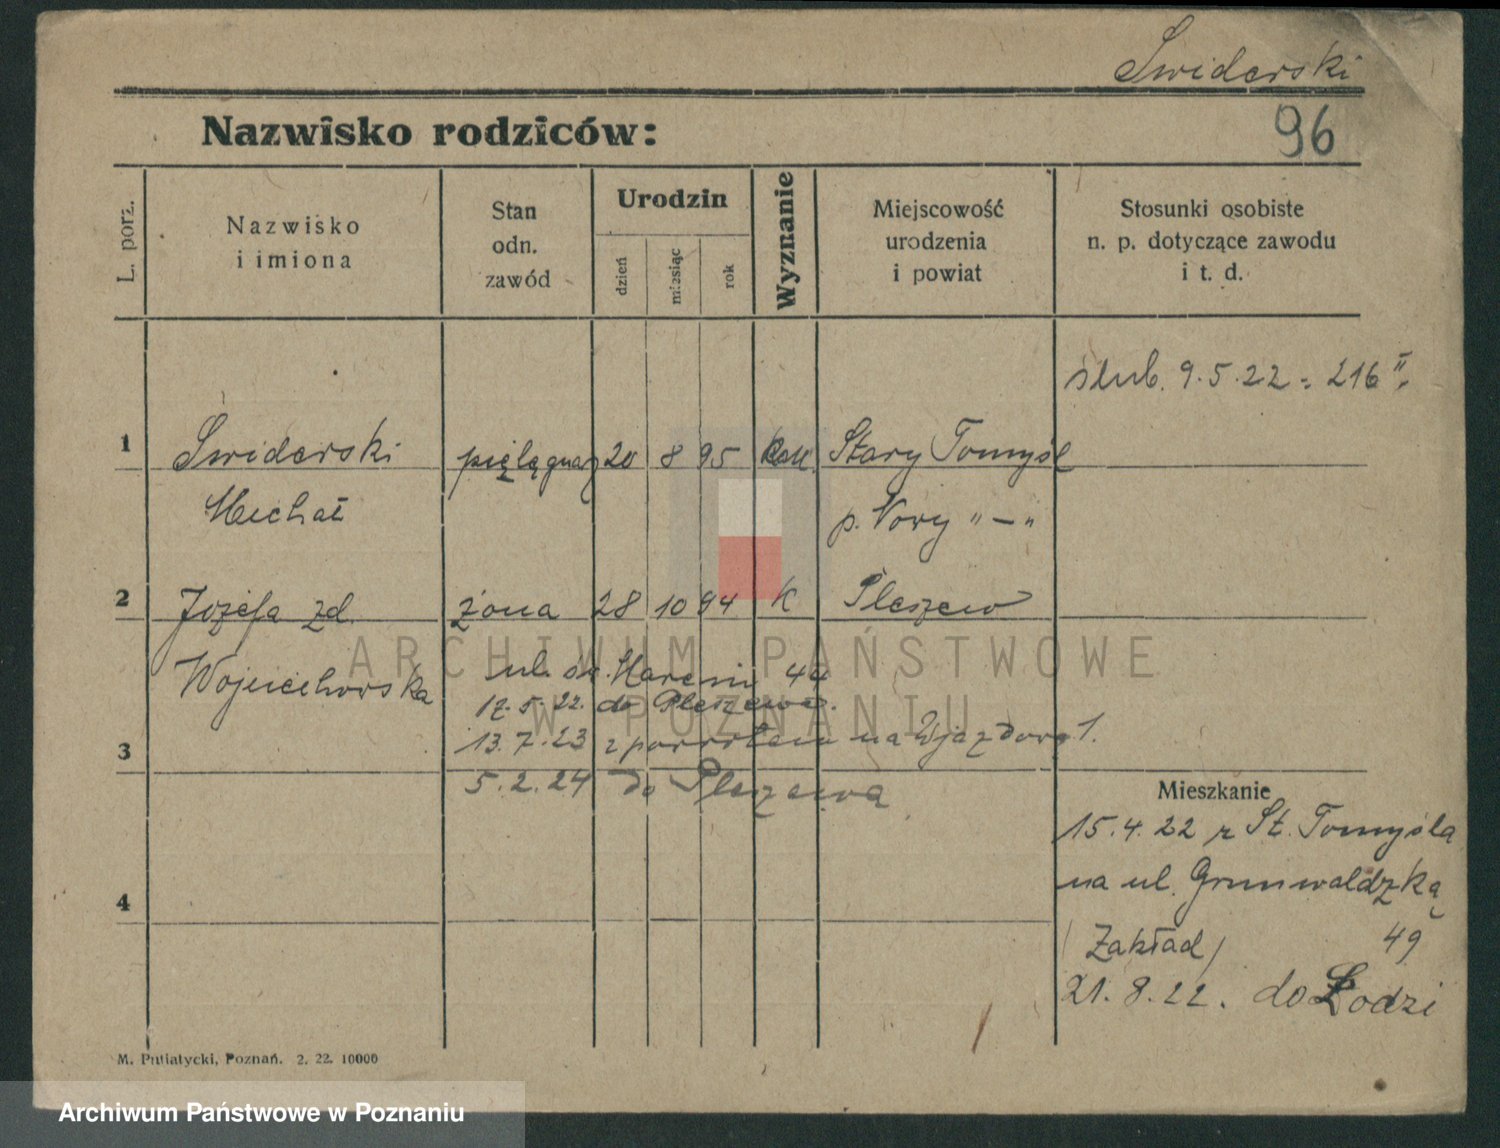 Swiderski
96
Nazwisko rodziców:
L. porz.
Nazwisko
i imiona
Stan
odn.
zawód
Urodzin
dzień
miesiąc
rok
Wyznanie
Miejscowość
urodzenia
i powiat
Stosunki osobiste
n. p. dotyczące zawodu
i t. d.
ślub. 9.5.22 = 216 II.
1 Swiderski pielęgnarz 20 8 95 kat. Stary Tomyśl
Michał p. Nowy "—"
2 Józefa zd. żona 28 10 94 k Pleszew
Wojciechowska ul. św. Marcin 44
17.5.22. do Pleszewa.
13.7.23 z powrotem na Wjazdową 1.
3
5.2.24 do Pleszewa
Mieszkanie
15.4.22 z St. Tomyśla
na ul. Grunwaldzką
4
/Zakład/ 49
21.8.22. do Łodzi
M. Putiatycki, Poznań. 2. 22. 10000
ARCHIWUM PAŃSTWOWE
W POZNANIU
Archiwum Państwowe w Poznaniu